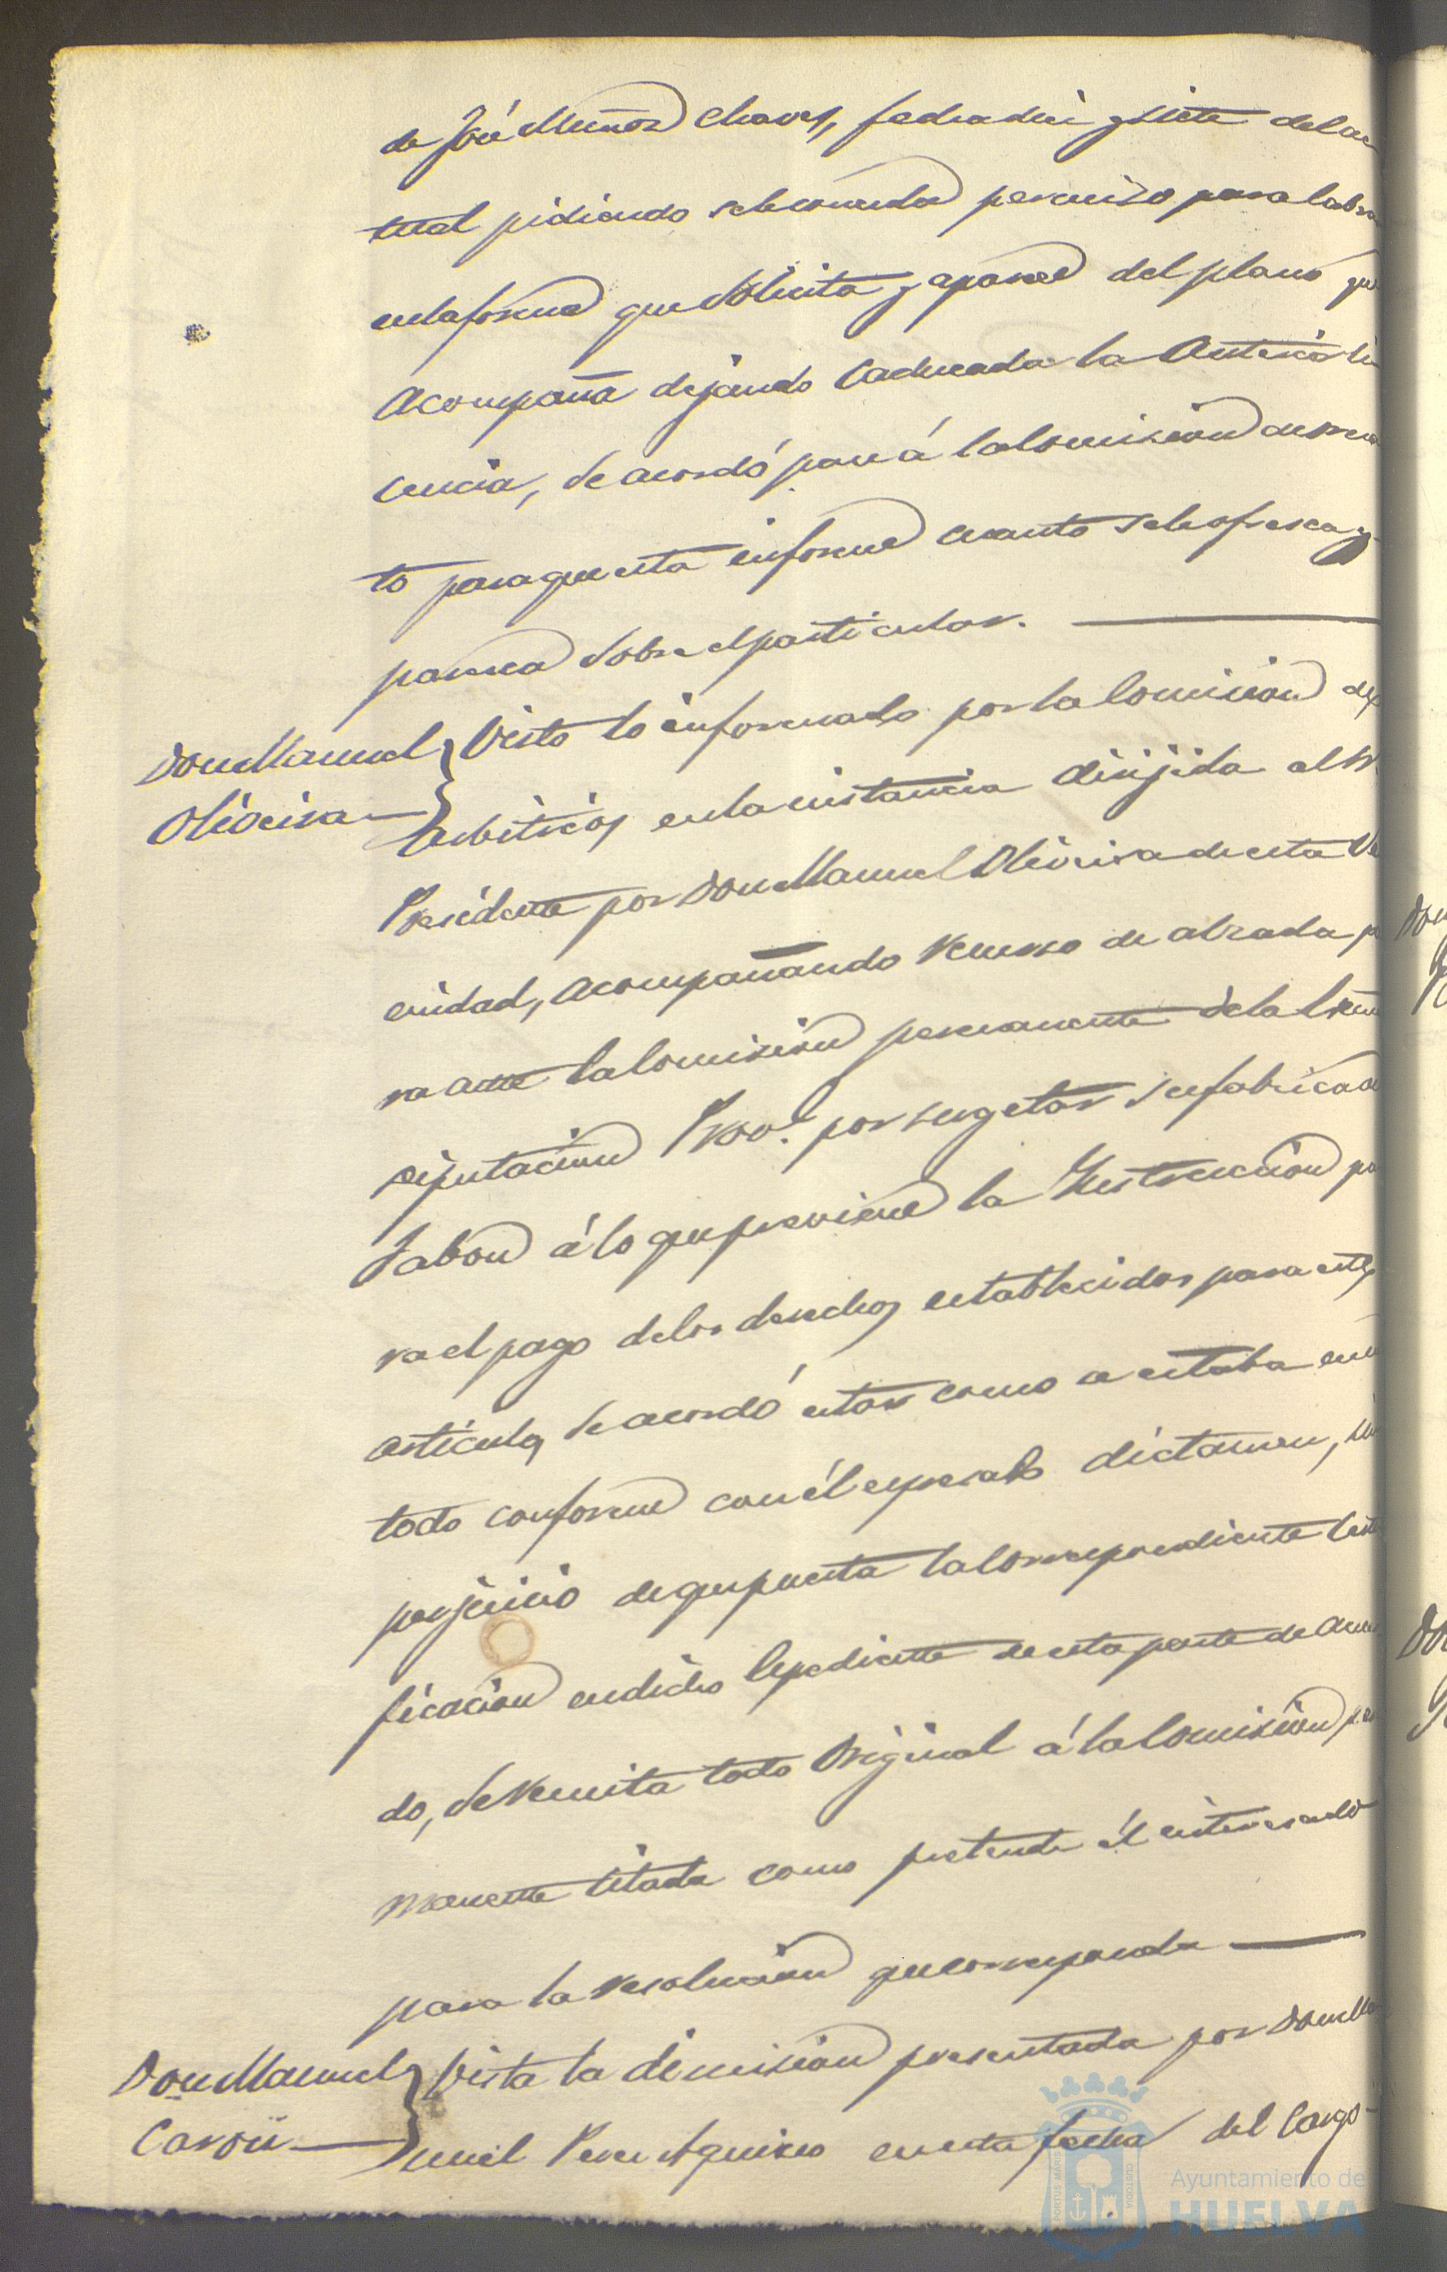 de José Muñoz Chaves, fecha diez y siete del ac
tual pidiendo se le conceda permiso para labra
en la forma que solicita y aparece del plano que
acompaña dejando caducada la anterior li
cencia, se acordó pase á la Comision de
to para que esta informe cuanto se le ofresca y
paresca sobre el particular.
Don Manuel
Oliveira
Visto lo informado por la Comision de
Arbitrios en la instancia dirijida al Sr.
Presidente por Don Manuel Oliveira de esta Ve
cindad, acompañando recurso de alzada pa
ra ante la Comision permanente de la Excma
Diputacion Prov.l por sugetar su fabrica de
Jabon á lo que previene la Instruccion pa
ra el pago de los derechos establecidos para estos
articulos, se acordó estar como se estaba en un
todo conforme con él espresado dictamen, sin
perjuicio de que puesta la correspondiente certi
ficacion en dicho Expediente de esta parte de acuer
do, se remita todo original á la Comision per
manente citada como pretende él interesado
para la resolucion que corresponda
Don Manuel
Vista la dimision presentada por Don Ma
nuel Perez Aquino en esta fecha del Cargo
Ayuntamiento de
HUELVA